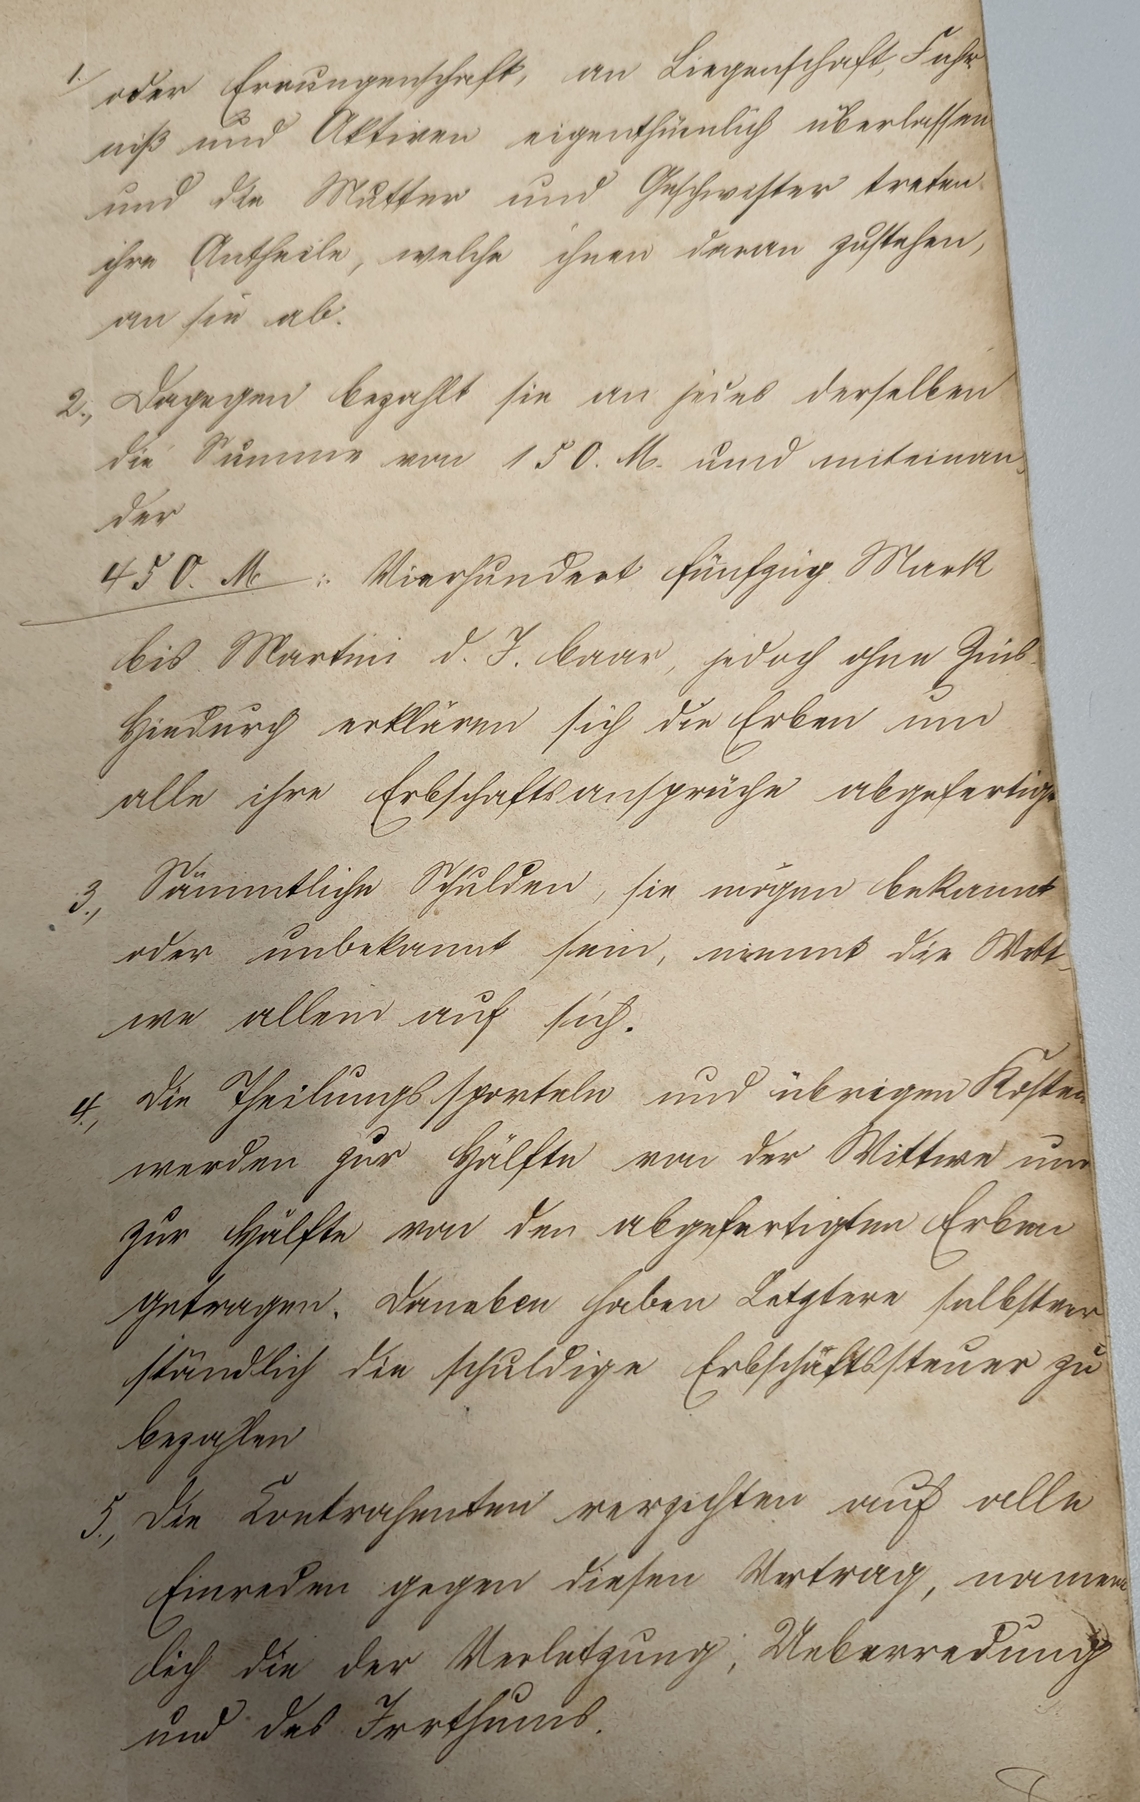 1. oder Errungenschaft, an Liegenschaft, Fahr
niß und Aktiven eigenthümlich überlassen
und die Mutter und Geschwister treten
ihre Antheile, welche ihnen daran zustehen,
an sie ab.
2., Dagegen bezahlt sie an jedes derselben
die Summe von 150. M. und miteinan-
der
450. M :. Vierhundert fünfzig Mark
bis Martini d. J. baar, jedoch ohne Zins.
Hiedurch erklären sich die Erben um
alle ihre Erbschaftsansprüche abgefertigt
3., Sämmtliche Schulden, sie mögen bekannt
oder unbekannt sein, nimmt die Witt-
we allein auf sich.
4., Die Theilungssporteln und übrigen Kosten
werden zur Hälfte von der Wittwe und
zur Hälfte von den abgefertigten Erben
getragen. Daneben haben Letztere selbstver
ständlich die schuldige Erbschaftssteuer zu
bezahlen
5., Die Contrahenten verzichten auf alle
Einreden gegen diesen Vertrag, namen
lich die der Verletzung, Ueberredung
und des Irrthums.